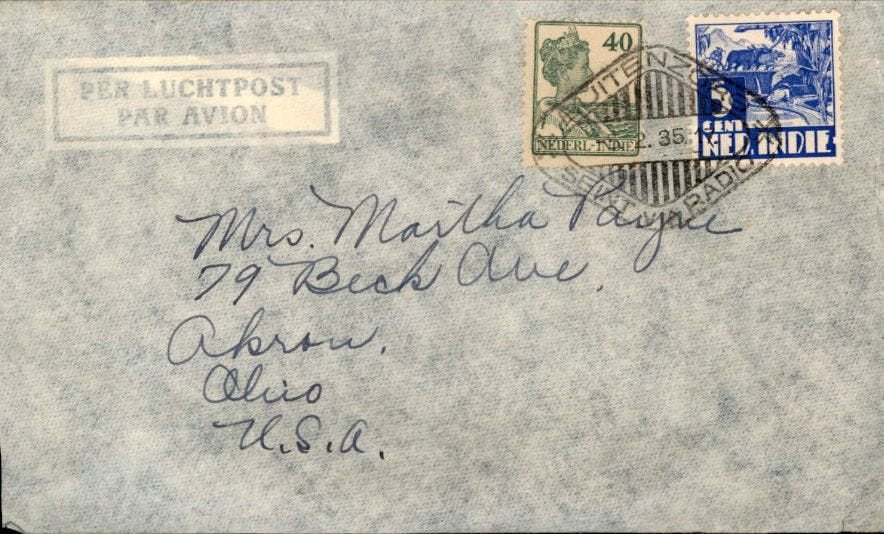 PER LUCHTPOST
PAR AVION
40
NEDERL-INDIE
5
CENT
NED. INDIE
BUITENZORG
2.35.
SEINT VIA RADIO
Mrs. Martha Payne
79 Beck Ave.
Akron,
Ohio
U.S.A.